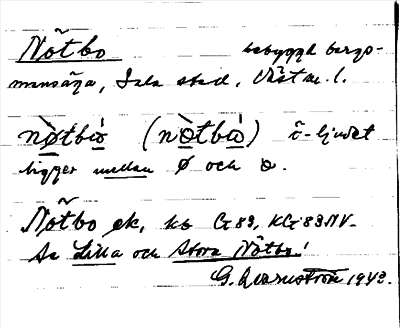 Nötbo bebyggd bergs-
mansäga, Sala stad, Västm. l.
nø̀tbò (nòtbò) ö-ljudet
ligger mellan ø och ɵ.
Nötbo ek. kb G 83, KG 83 NV.
Se Lilla och Stora Nötbo!
G. 1943.